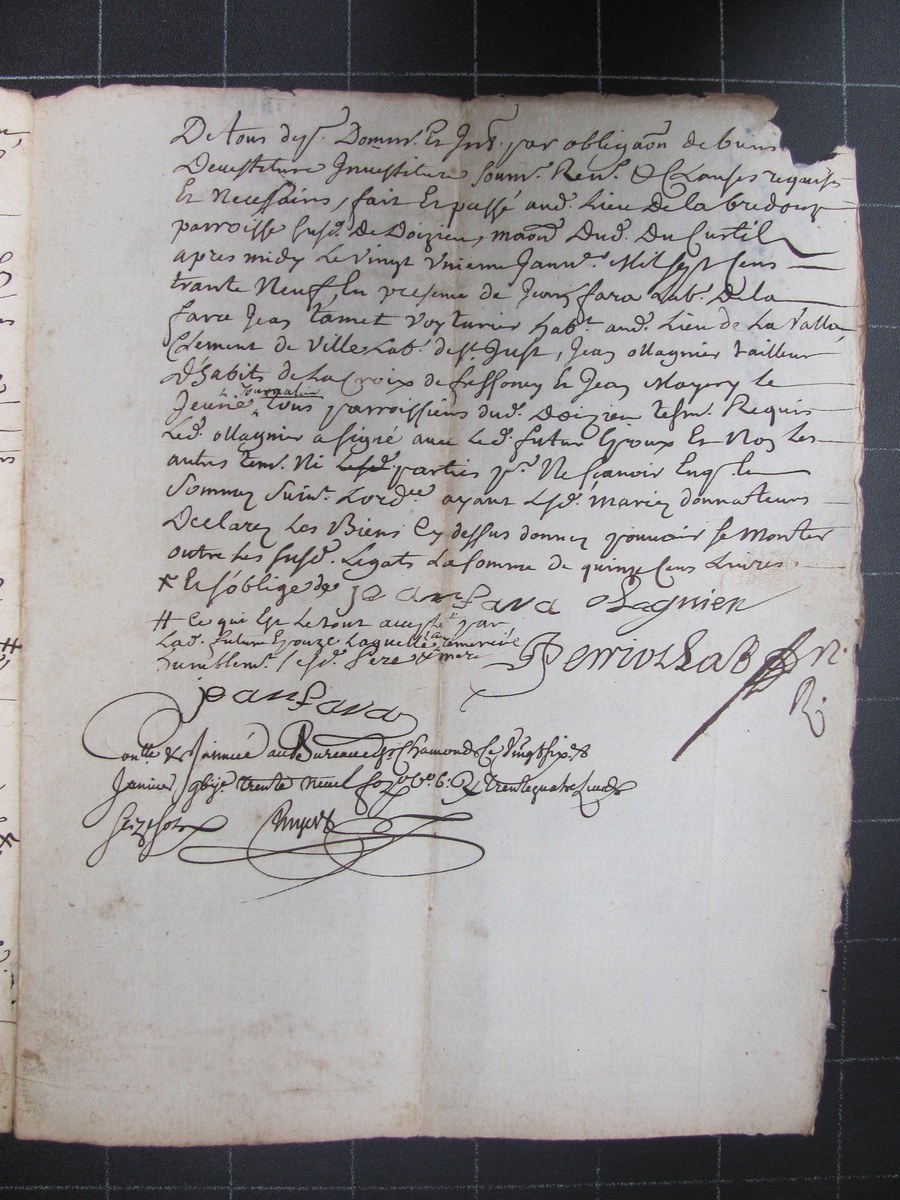 De tous desp. Domm. Et Int. par obligaõn de biens
Devestiture Investiture soum. Ren. & Clauses requises
Et Necessaires, fait Et passé aud. Lieu De la
parroisse susd. De Doizieu, maõn Dud. Du Curtil
apres midy Le vingt unieme Janv. Mil sept Cens
trante Neuf, En presence de Jean fara Lab. De la
fara Jean tamet Voyturier habt. aud. Lieu de La Valla
Clement de Ville Lab. de St. Just, Jean Magnier tailleur
D'habits de La Croix de Et Jean Mayery le
Jeune tous parroissiens dud. Doizieu tesm. Requis
Led. Magnier a signé avec Led. futur Epoux Et Non les
autres tem. Ni Lesd. parties pr. Ne sçavoir Enq. le
Sommez suiv. Lordce ayant Lesd. mariez donnateurs
Declarez Les Biens Cy dessus donnez pouvoir se Monter
outre Les susd. Legats La somme de quinze Cens Livres.
* Et s'oblige de jeanfara Magnien
# Ce qui Est Le tout accepté par
Lad. future Epouze Laquelle a remercié
humblemt. Lesd. Pere & mere
R.
jeanfara
Contlé & Insinué au Bureau de St Chamond Le Vingt six
Janvier trente neuf fo trente quatre
Seize sols